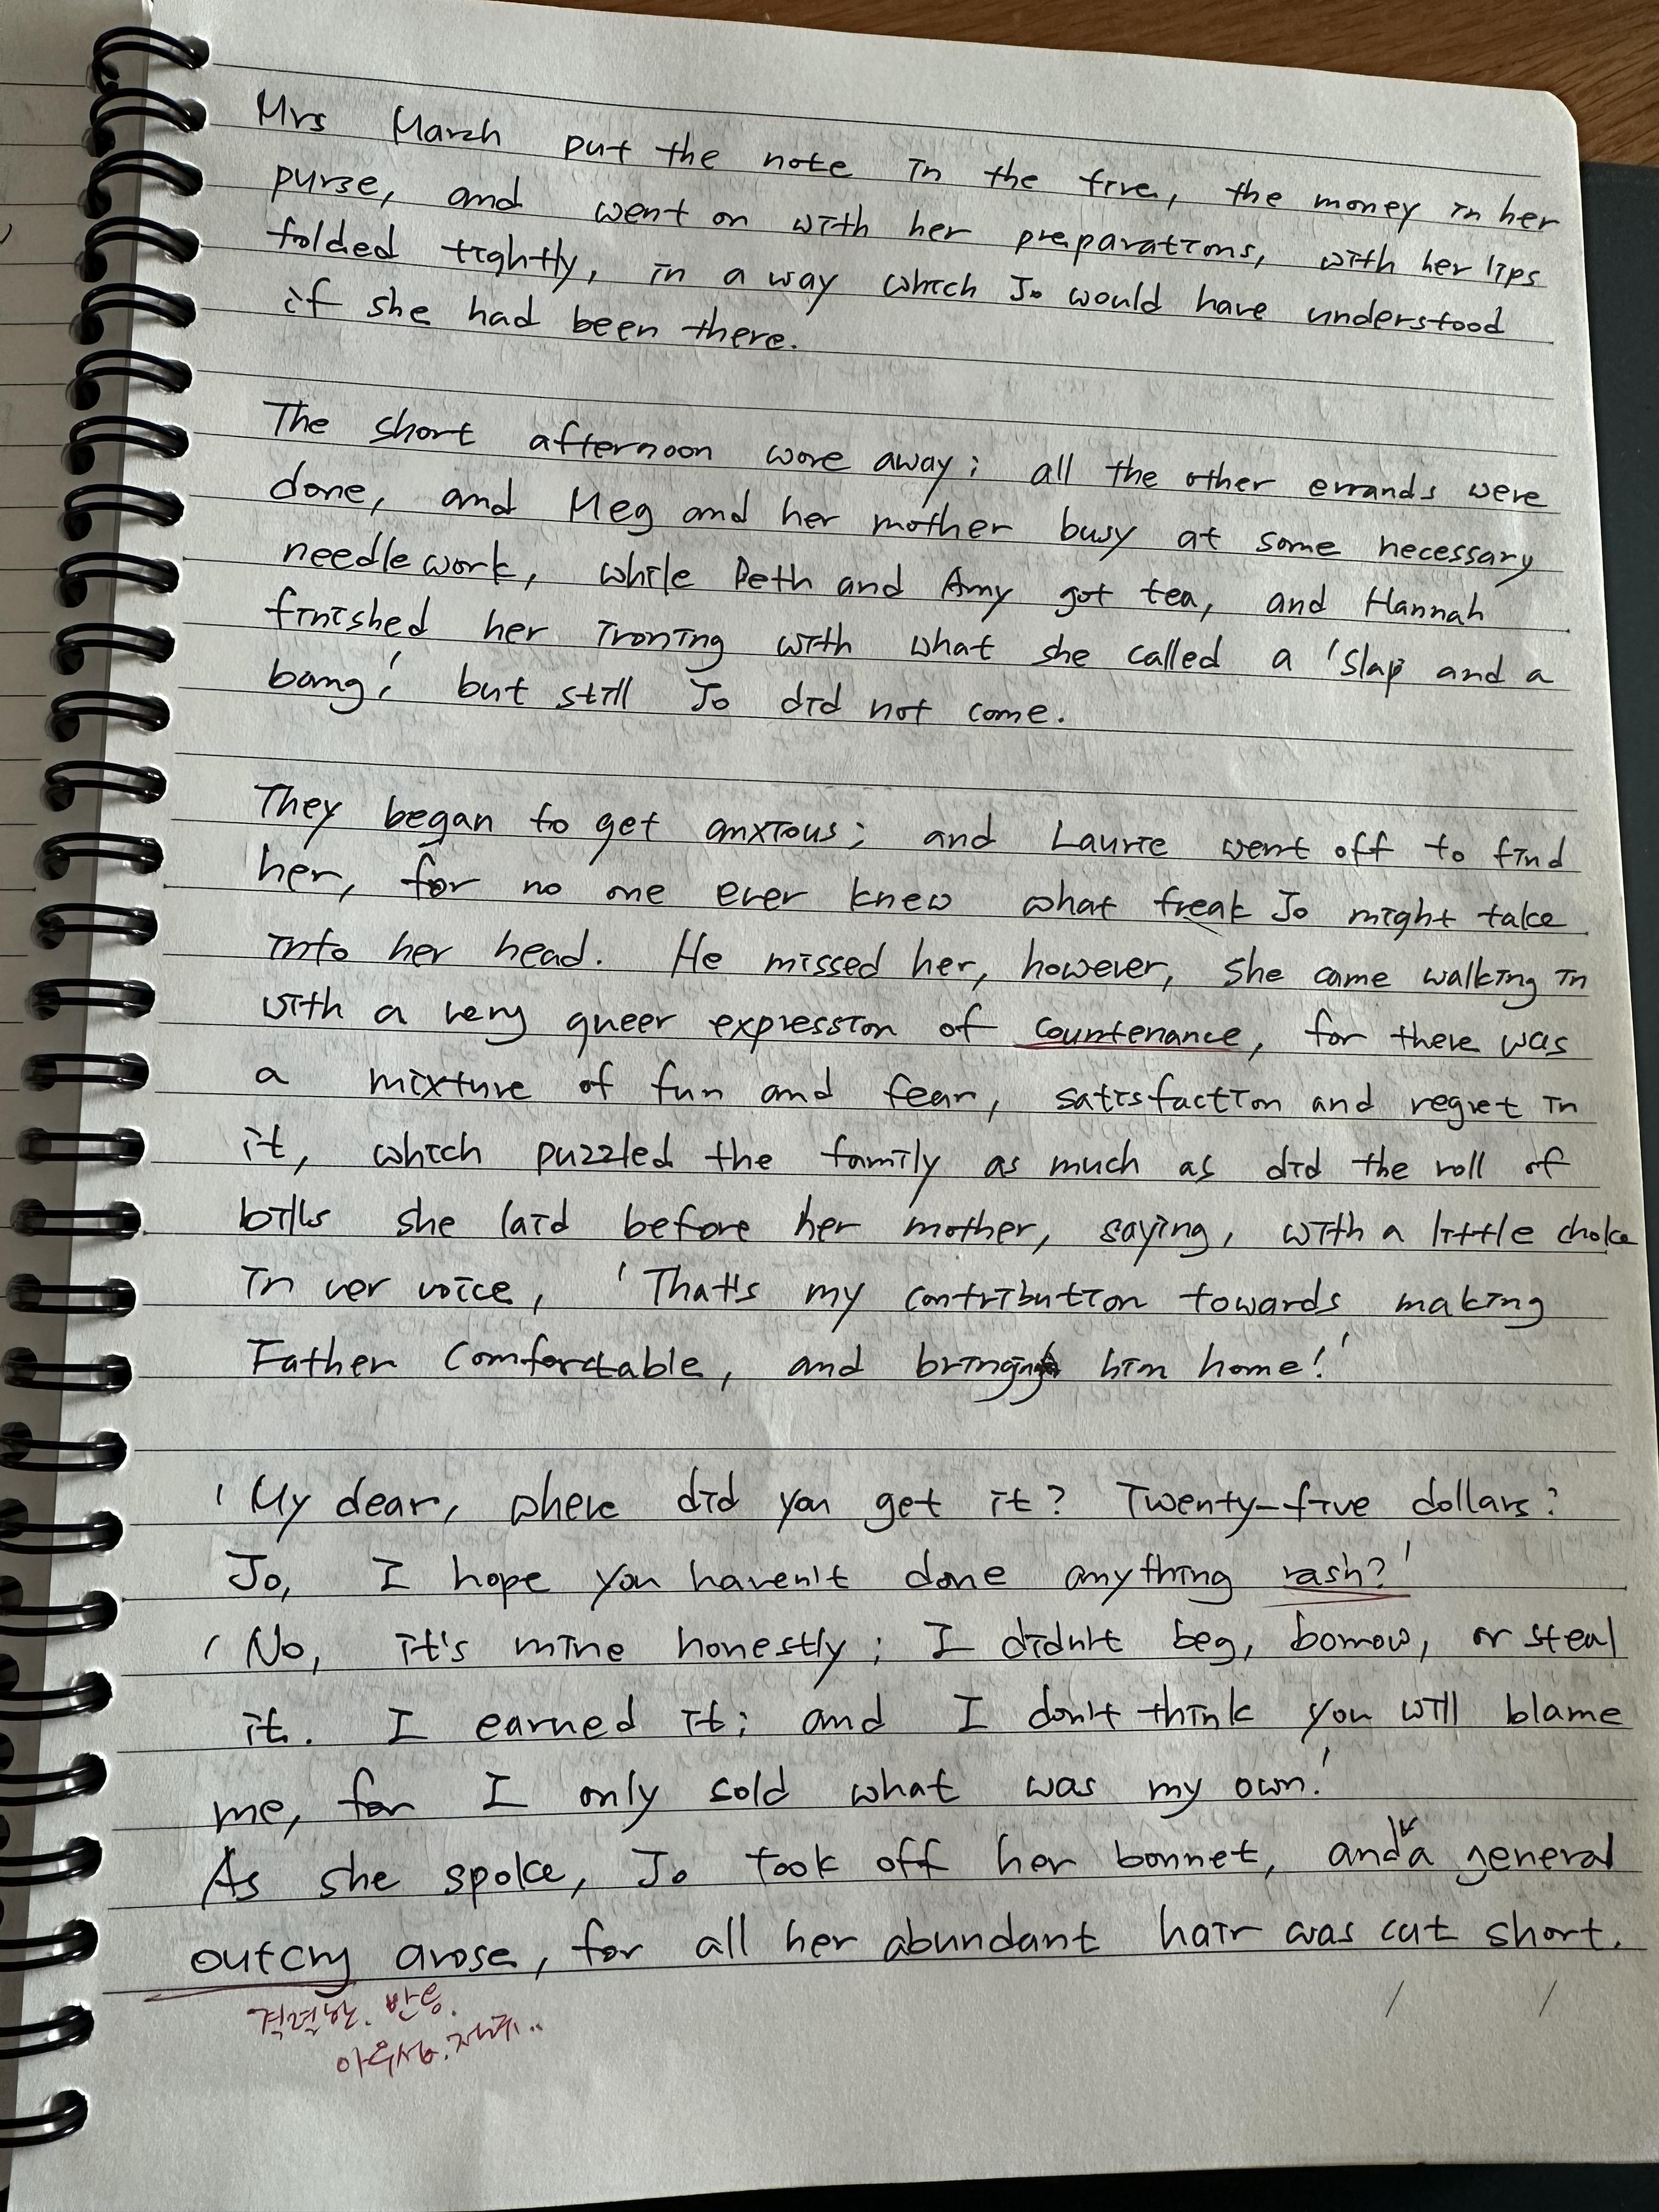 Mrs March put the note in the fire, the money in her
purse, and went on with her preparations, with her lips
folded tightly, in a way which Jo would have understood
if she had been there.
The short afternoon wore away; all the other errands were
done, and Meg and her mother busy at some necessary
needle work, while Beth and Amy got tea, and Hannah
finished her ironing with what she called a 'slap and a
bang,' but still Jo did not come.
They began to get anxious; and Laurie went off to find
her, for no one ever knew what freak Jo might take
into her head. He missed her, however, she came walking in
with a very queer expression of countenance, for there was
a mixture of fun and fear, satisfaction and regret in
it, which puzzled the family as much as did the roll of
bills she laid before her mother, saying, with a little choke
in ver voice, 'That's my contribution towards making
Father comfortable, and bringing him home!'
'My dear, where did you get it? Twenty-five dollars?
Jo, I hope you haven't done anything rash?'
'No, it's mine honestly; I didn't beg, borrow, or steal
it. I earned it; and I don't think you will blame
me, for I only sold what was my own.'
As she spoke, Jo took off her bonnet, and a general
outcry arose, for all her abundant hair was cut short.
격렬한. 반응.
아우성.